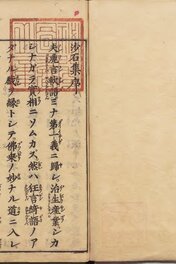 沙石集序
夫麁言軟語ミナ第一義ニ歸シ治生産業シカ
シナガラ實相ニソムカズ然ハ狂言綺語ノア
ダナル戯ヲ縁トシテ佛乘ノ妙ナル道ニ入レ